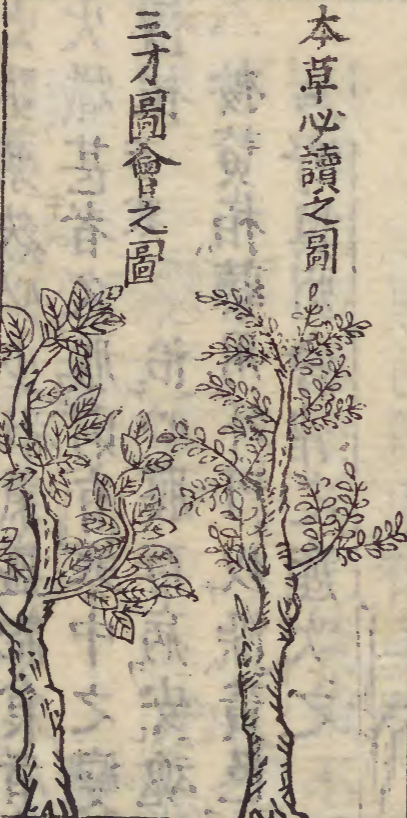 本草必讀之圖
三才圖會之圖